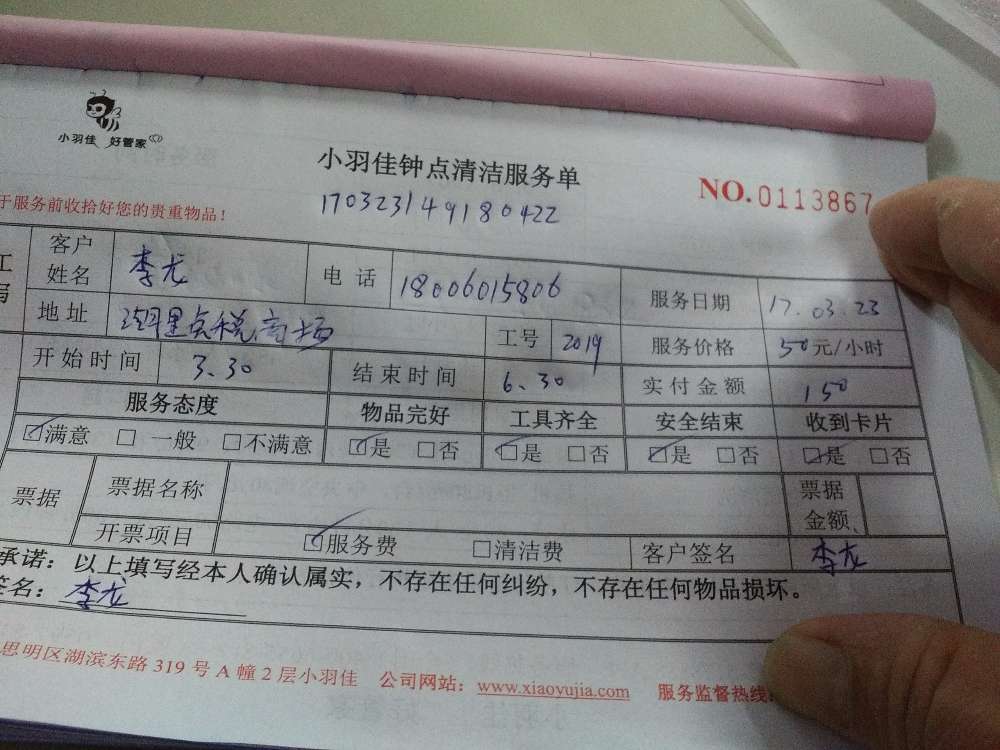 小羽佳 好管家
小羽佳钟点清洁服务单
NO.0113867
170323149180422
于服务前收拾好您的贵重物品！
客户姓名 李龙 电话 18006015806 服务日期 17.03.23
地址 商场 工号 2019 服务价格 50元/小时
开始时间 3.30 结束时间 6.30 实付金额 150
服务态度 物品完好 工具齐全 安全结束 收到卡片
☑满意 □一般 □不满意 ☑是 □否 ☑是 □否 ☑是 □否 ☑是 □否
票据 票据名称 票据金额
开票项目 ☑服务费 □清洁费 客户签名 李龙
承诺：以上填写经本人确认属实，不存在任何纠纷，不存在任何物品损坏。
签名：李龙
思明区湖滨东路319号A幢2层小羽佳 公司网站：www.xiaoyujia.com 服务监督热线：